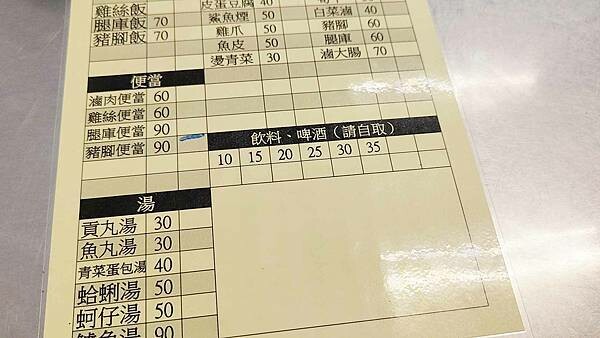 雞絲飯
腿庫飯 70
豬腳飯 70
皮蛋豆腐 40
鯊魚煙 50
雞爪 50
魚皮 50
燙青菜 30
40
白菜滷 40
豬腳 60
腿庫 60
滷大腸 70
便當
滷肉便當 60
雞絲便當 60
腿庫便當 90
豬腳便當 90
飲料、啤酒(請自取)
10 15 20 25 30 35
湯
貢丸湯 30
魚丸湯 30
青菜蛋包湯 40
蛤蜊湯 50
蚵仔湯 50
魚湯 90